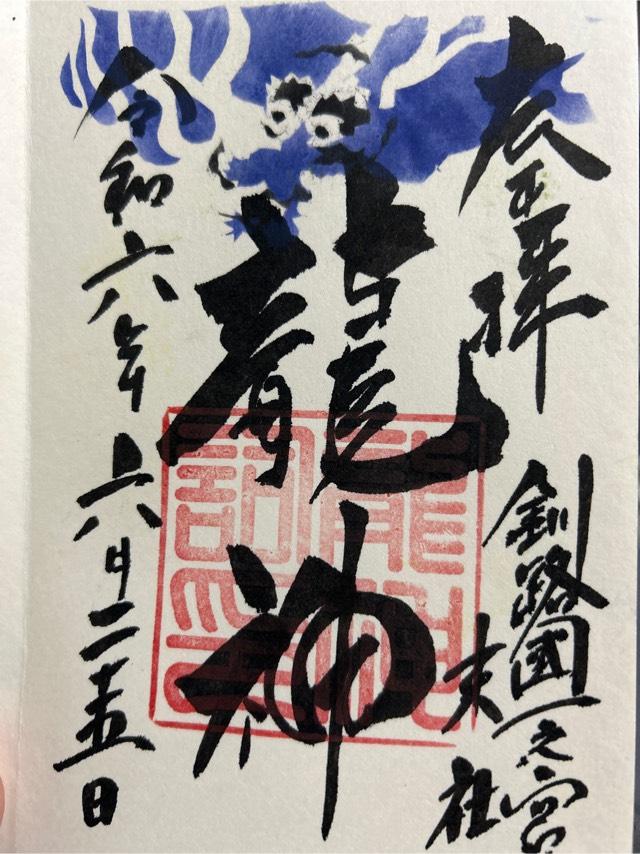 奉拝
釧路國一之宮
末社
龍神
龍神記印
令和六年六月二十五日